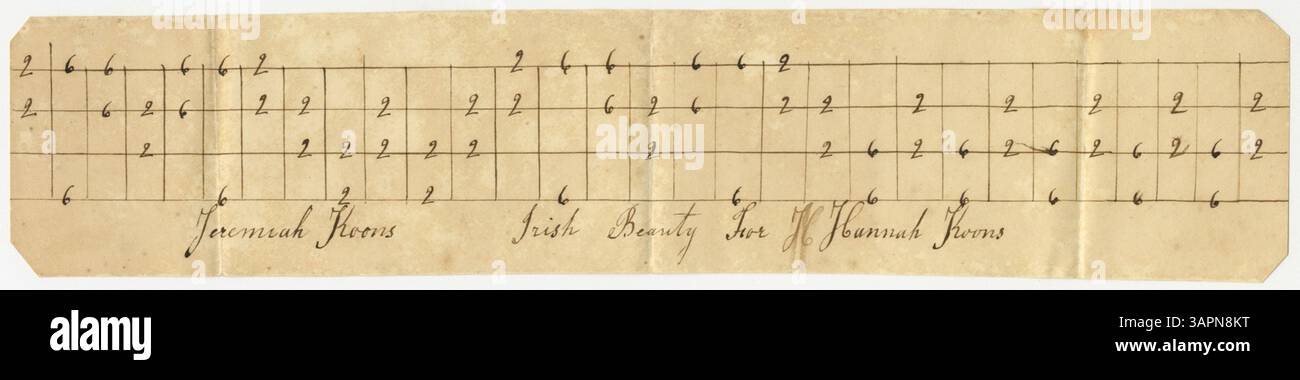 2 6 6 6 6 2 2 6 6 6 6 2
2 6 2 6 2 2 2 2 2 6 2 6 2 2 2 2 2 2 2
2 2 2 2 2 2 2 2 6 2 6 2 6 2 6 2 6 2
6 6 2 2 6 6 6 6 6 6 6
Jeremiah Koons Irish Beauty For H Hannah Koons
alamy
Image ID: 3APN8KT
www.alamy.com